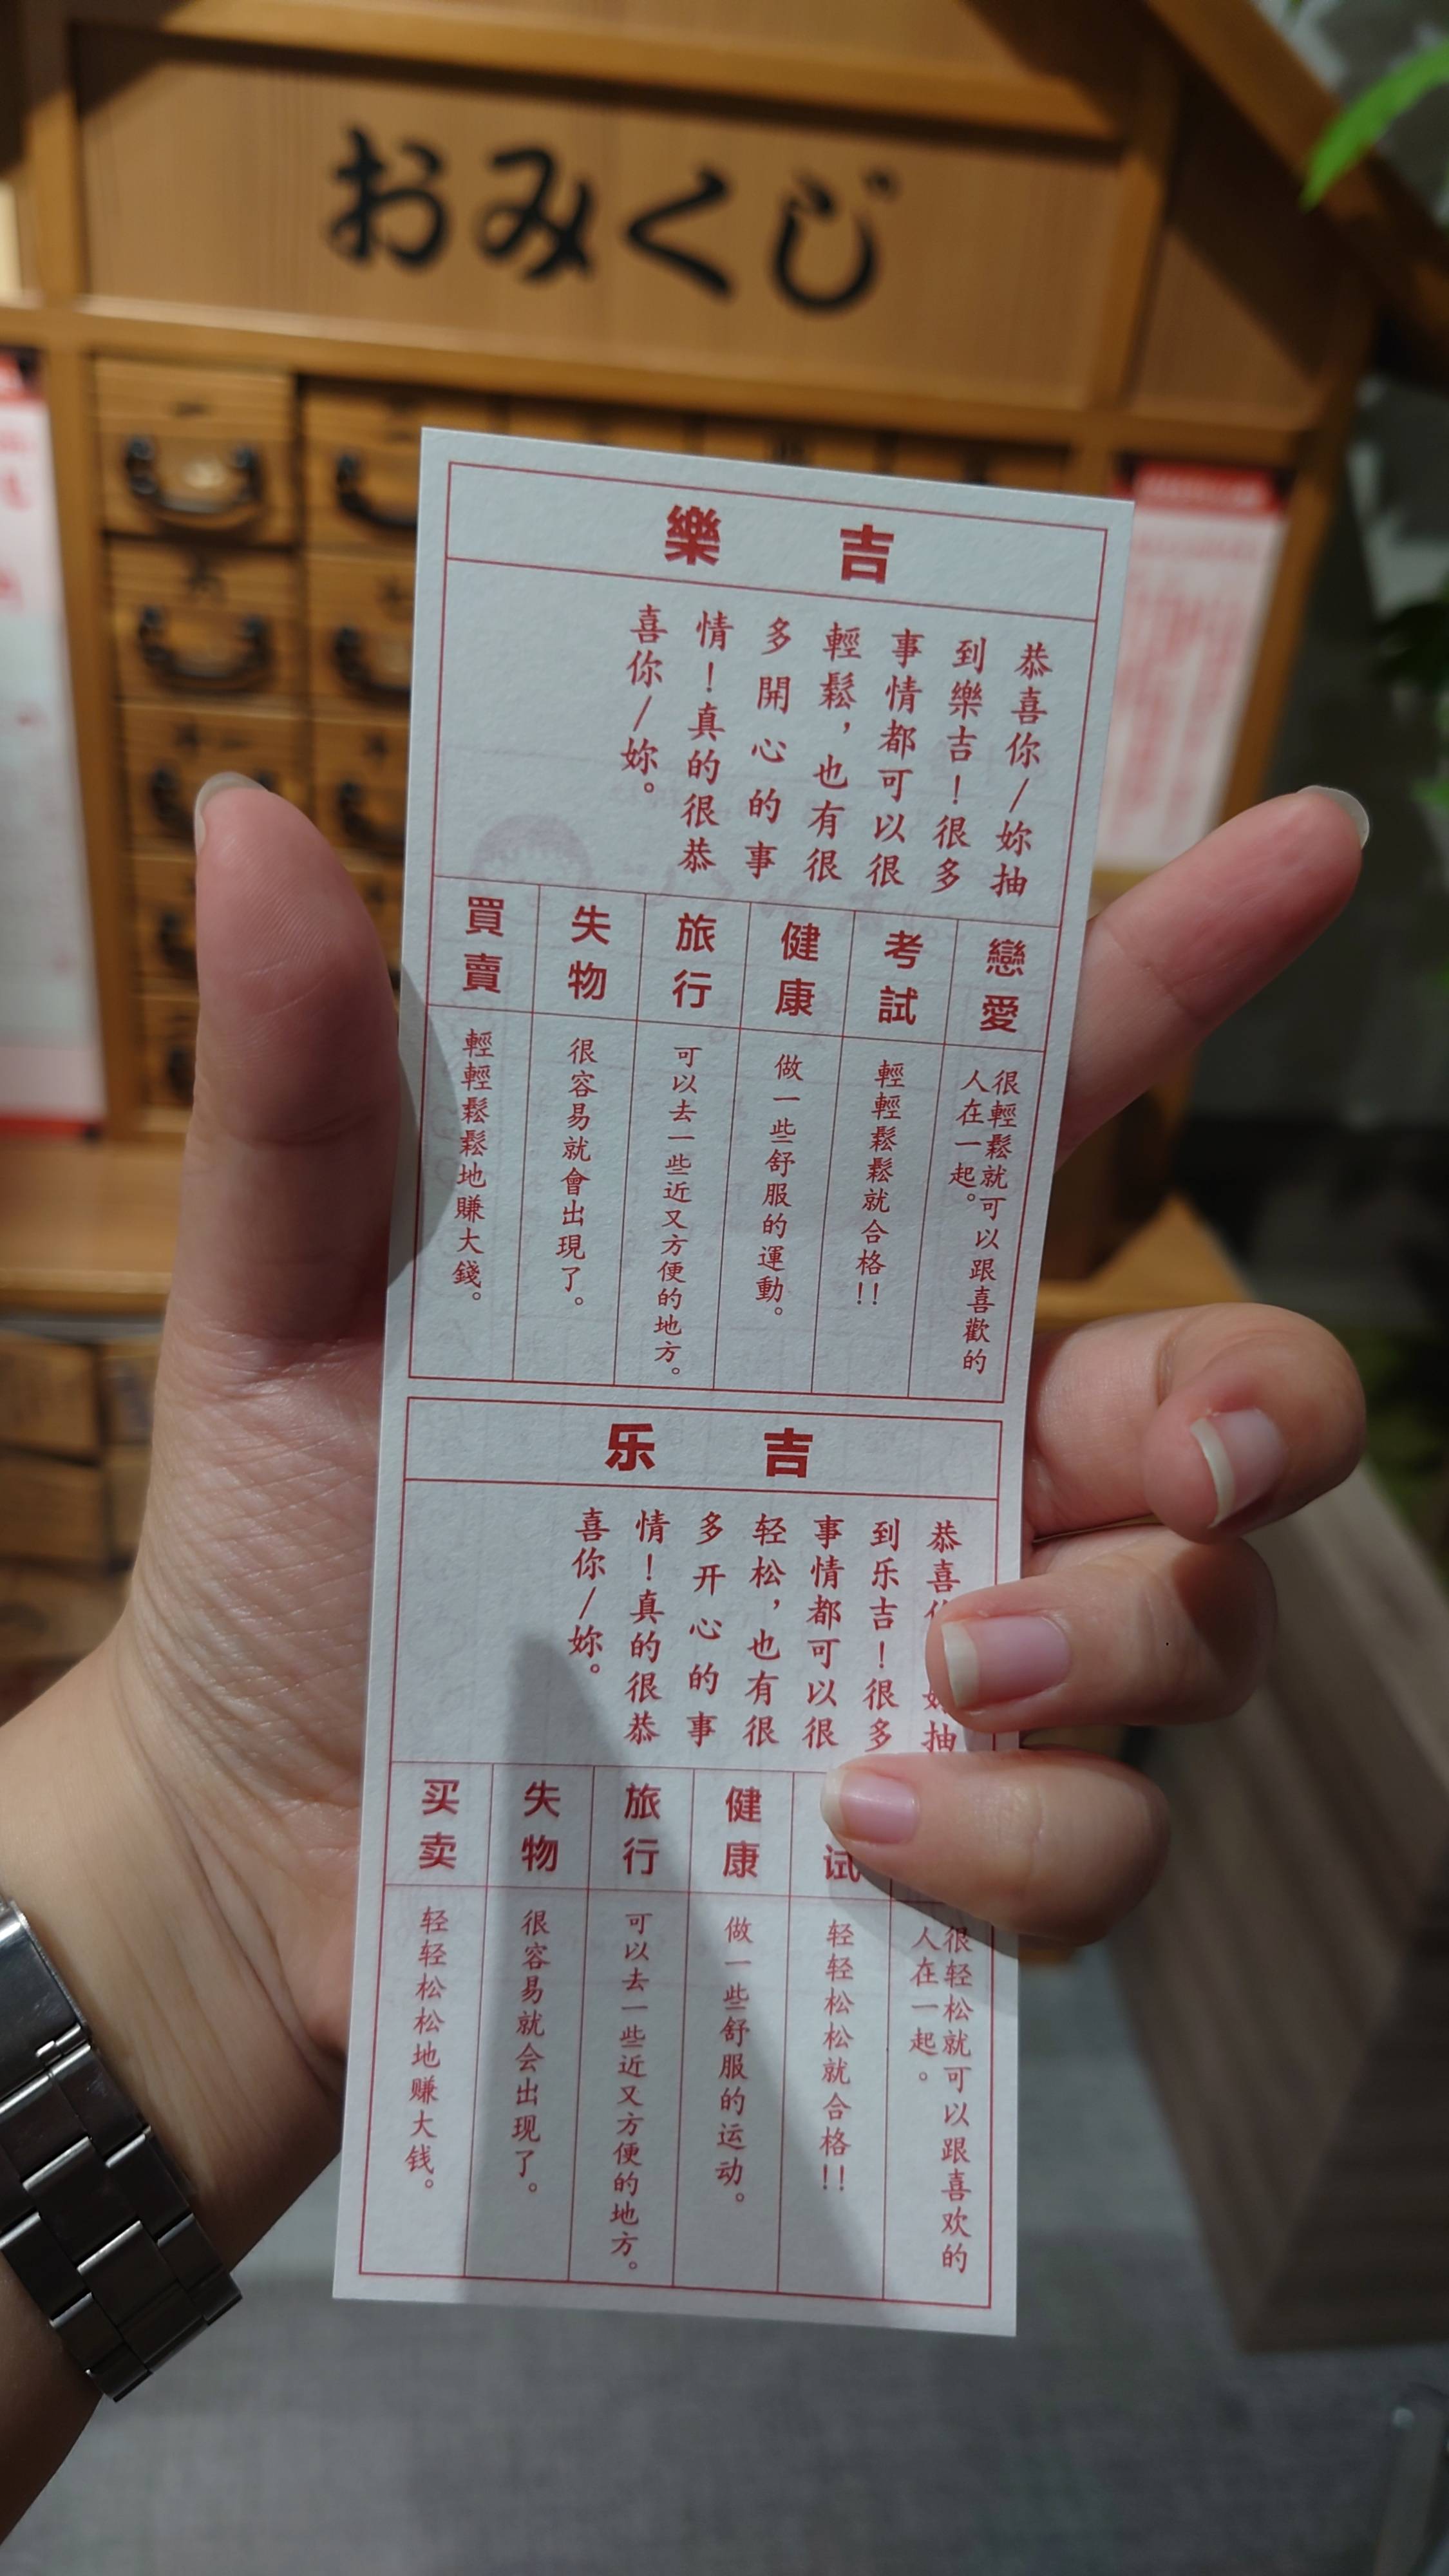 おみくじ
樂吉
恭喜你/妳抽
到樂吉!很多
事情都可以很
輕鬆,也有很
多開心的事
情!真的很恭
喜你/妳。
戀愛
很輕鬆就可以跟喜歡的
人在一起。
考試
輕輕鬆鬆就合格!!
健康
做一些舒服的運動。
旅行
可以去一些近又方便的地方。
失物
很容易就會出現了。
買賣
輕輕鬆鬆地賺大錢。
乐吉
恭喜 抽
到乐吉!很多
事情都可以很
轻松,也有很
多开心的事
情!真的很恭
喜你/妳。
很轻松就可以跟喜欢的
人在一起。
试
轻轻松松就合格!!
健康
做一些舒服的运动。
旅行
可以去一些近又方便的地方。
失物
很容易就会出现了。
买卖
轻轻松松地赚大钱。